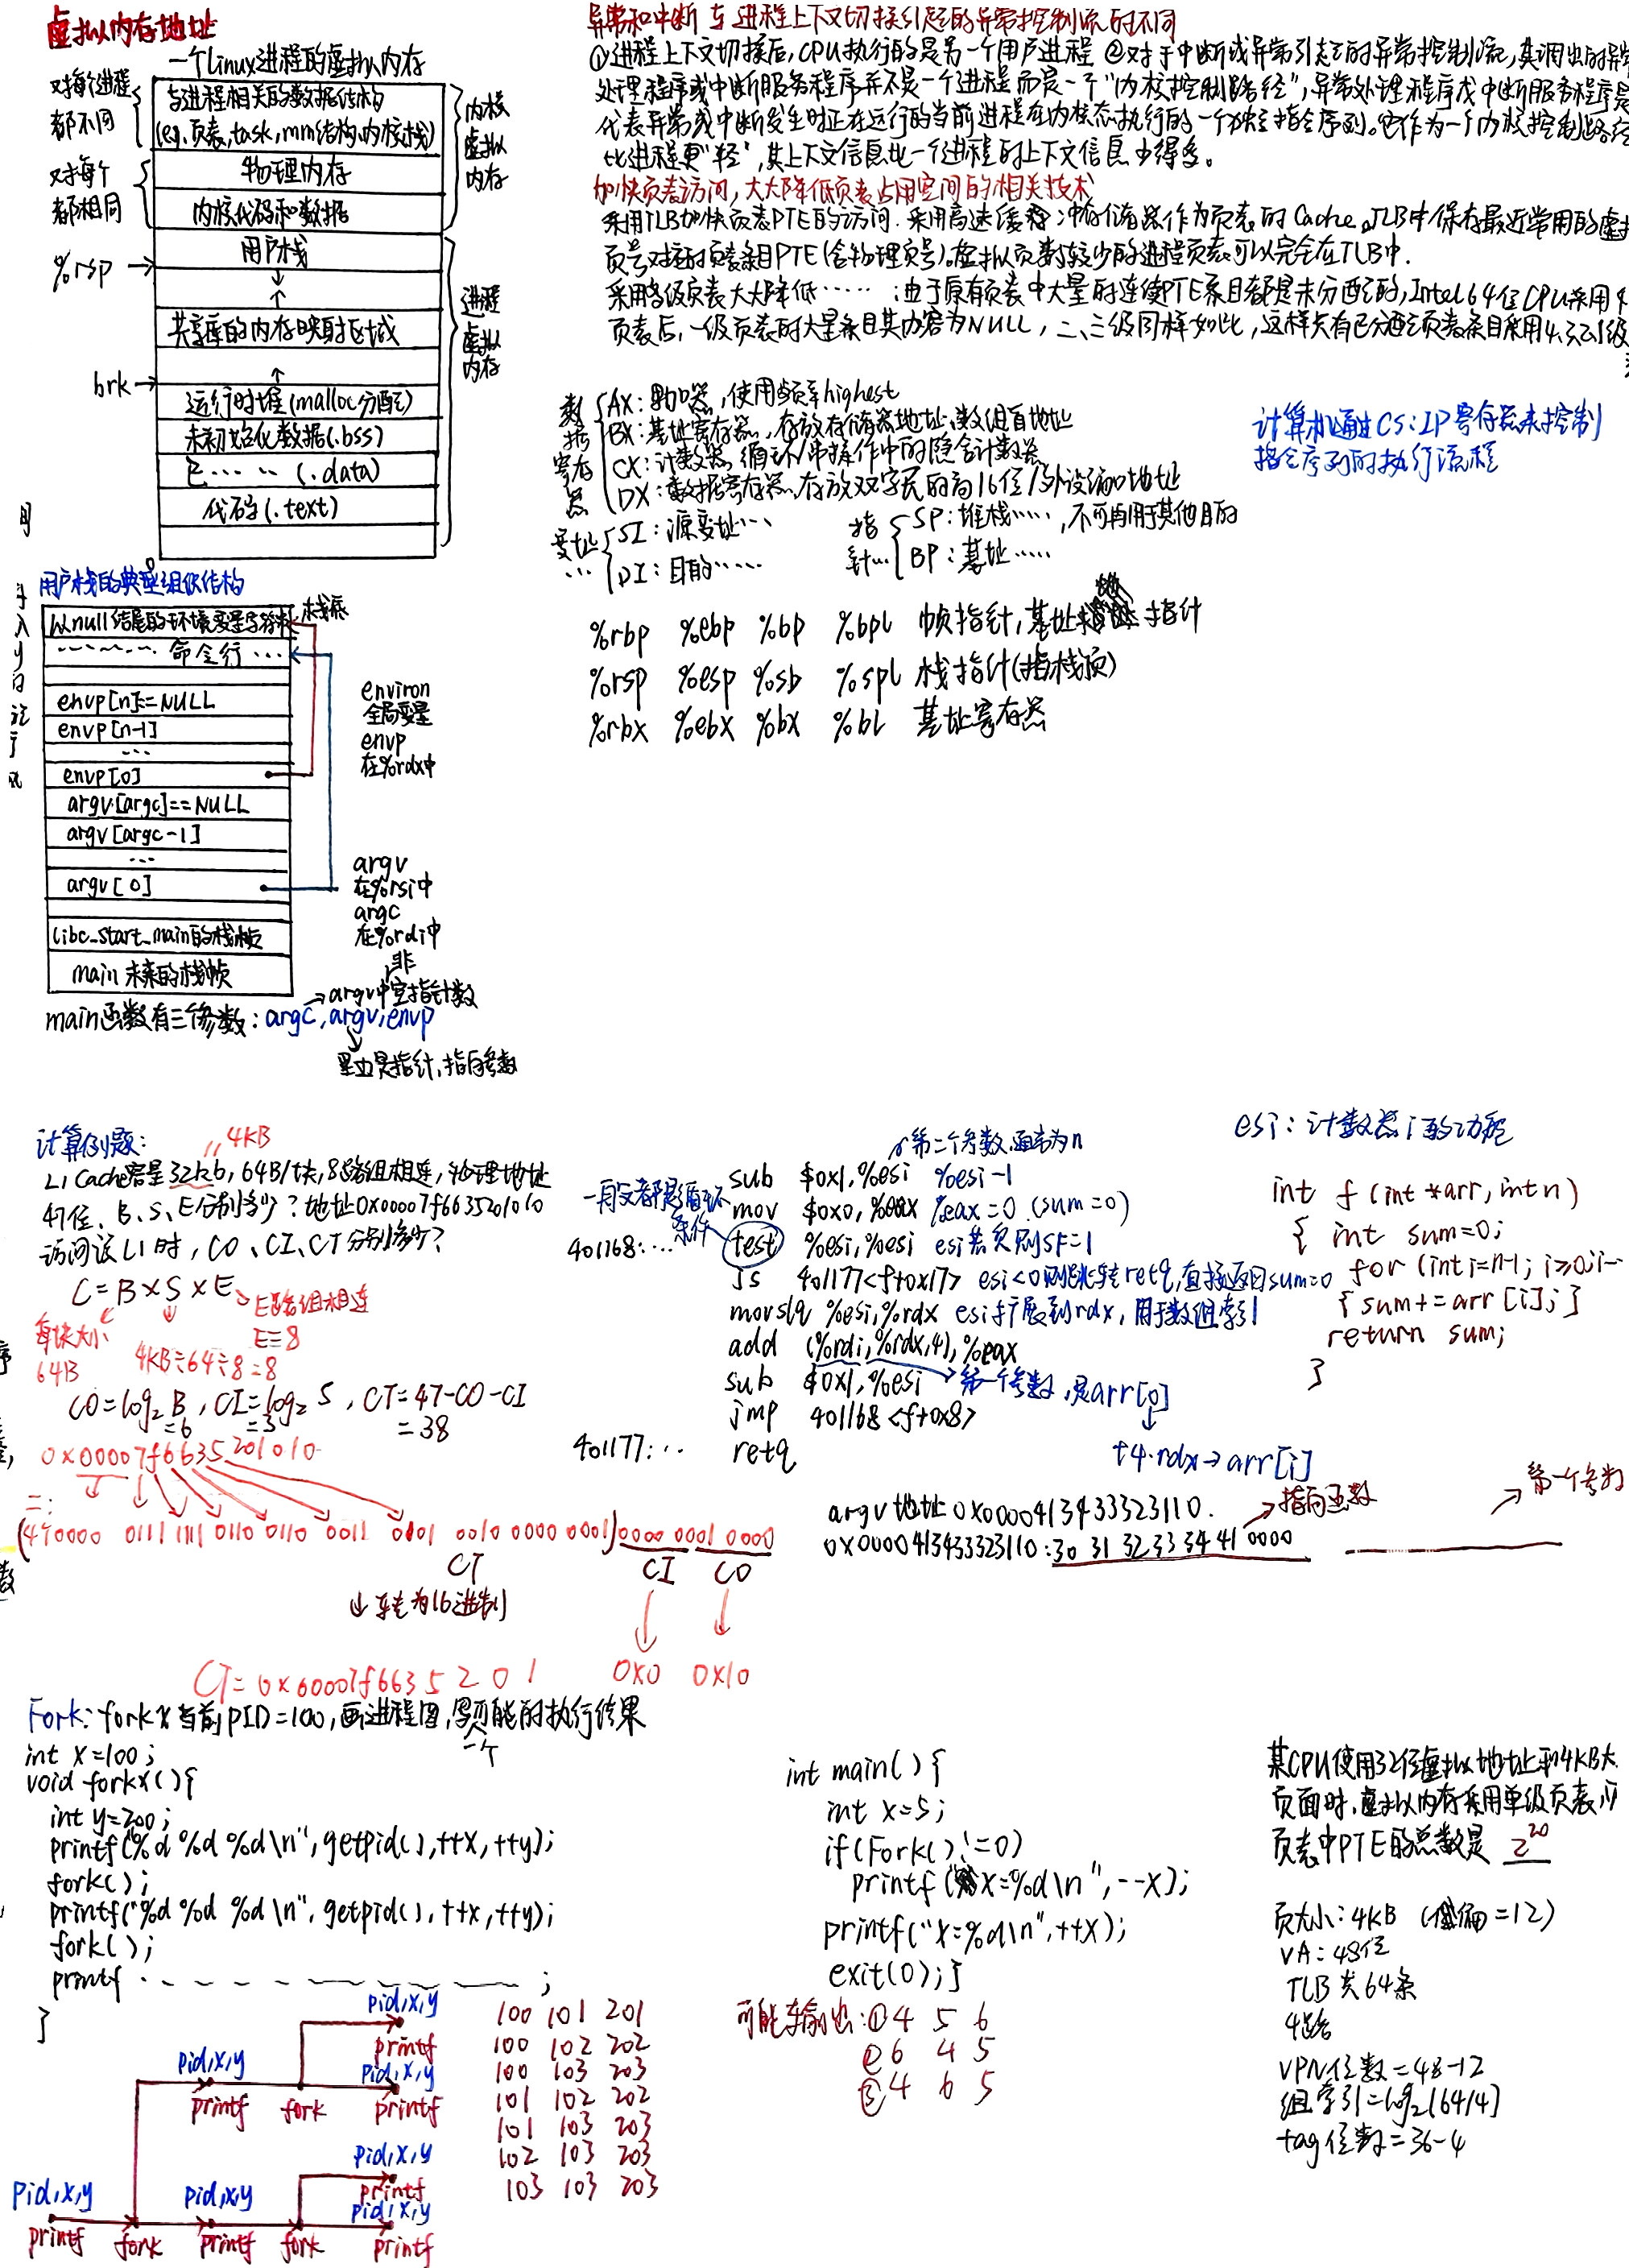 虚拟内存地址
一个Linux进程的虚拟内存
对每个进程
都不同
与进程相关的数据结构
(eg.页表,task,mm结构,内核栈)
内核
虚拟
内存
对每个
都相同
物理内存
内核代码和数据
用户栈
%rsp →
↓
↑
共享库的内存映射区域
进程
虚拟
内存
brk →
↑
运行时堆(malloc分配)
未初始化数据(.bss)
已…… (.data)
代码(.text)
用户栈的典型组织结构
以null结尾的环境变量字符串
栈底
…… 命令行 …
envp[n]==NULL
envp[n-1]
...
envp[0]
argv[argc]==NULL
argv[argc-1]
...
argv[0]
libc_start_main的栈帧
main 未来的栈帧
environ
全局变量
envp
在%rdx中
argv
在%rsi中
argc
在%rdi中
非
→argv中空指针数
main函数有三个参数：argc,argv,envp
里边是指针,指向参数
异常和中断 与 进程上下文切换引起的异常控制流的不同
①进程上下文切换后，CPU执行的是另一个用户进程 ②对于中断或异常引起的异常控制流，其调出的异常
处理程序或中断服务程序并不是一个进程而是一个“内核控制路径”，异常处理程序或中断服务程序是
代表异常或中断发生时正在运行的当前进程在内核态执行的一个独立指令序列。它作为一个内核控制路径
比进程更“轻”，其上下文信息比一个进程的上下文信息少得多。
加快页表访问，大大降低页表占用空间的相关技术
采用TLB加快页表PTE的访问：采用高速缓冲存储器作为页表的Cache。TLB中保存最近常用的虚拟
页号对应的页表条目PTE(含物理页号)。虚拟页数较少的进程页表可以完全在TLB中.
采用多级页表大大降低……：由于原有页表中大量的连续PTE条目都是未分配的，Intel64位CPU采用4
页表后，一级页表的大量条目其内容为NULL，二、三级同样如此，这样只有已分配页表条目采用4.3.2.1级
数据寄存器
AX：累加器，使用频率highest
BX：基址寄存器，存放存储器地址、数组首地址
CX：计数器，循环/串操作中的隐含计数器
DX：数据寄存器，存放双字民的高16位/外设端口地址
变址
…
SI：源变址…
DI：目的……
指
针…
SP：堆栈……，不可再用于其他目的
BP：基址……
计算机通过CS:IP寄存器来控制
指令序列的执行流程
%rbp %ebp %bp %bpl 帧指针，基址指针
%rsp %esp %sb %spl 栈指针(指栈顶)
%rbx %ebx %bx %bl 基址寄存器
计算例题：
4KB
L1 Cache容量32kb，64B/块，8路组相连，物理地址
47位、B、S、E分别多少？地址0x00007f6635201010
访问该L1时，CO、CI、CT分别多少？
C=B×S×E
E路组相连
E=8
每块大小
64B
4KB÷64÷8=8
CO=log₂B，CI=log₂S，CT=47-CO-CI
=6 =3 =38
0x00007f6635201010
二：
(470000 0111 1111 0110 0110 0011 0101 0010 0000 0001)0000 0001 0000
CT CI CO
↓转为16进制
CT=0x00007f6635201 0x0 0x10
第二个参数，通常为n
一般都是循环
条件
sub $0x1,%esi %esi-1
mov $0x0,%eax %eax=0 (sum=0)
401168:… test %esi,%esi esi若负则SF=1
js 401177<f+0x17> esi<0则跳转retq,直接返回sum=0
movslq %esi,%rdx esi扩展到rdx，用于数组索引
add (%rdi,%rdx,4),%eax
sub $0x1,%esi → 第一个参数,是arr[0]
jmp 401168<f+0x8>
401177:… retq
+4·rdx→arr[i]
esi：计数器i的功能
int f(int *arr, int n)
{ int sum=0;
for(int i=n-1; i≥0;i--
{sum+=arr[i];}
return sum;
}
argv地址0x0000413433323110.
→指向函数
→第一个参数
0x0000413433323110:30 31 32 33 34 41 0000
Fork：forkx当前PID=100，画进程图，写可能的执行结果
一个
int x=100;
void forkx(){
int y=200;
printf("%d %d %d\n",getpid(),++x,++y);
fork();
printf("%d %d %d\n",getpid(),++x,++y);
fork();
printf - - - - - - - ;
}
pid,x,y
printf
pid,x,y pid,x,y
printf fork printf
pid,x,y
printf
pid,x,y pid,x,y pid,x,y
printf fork printf fork printf
100 101 201
100 102 202
100 103 203
101 102 202
101 103 203
102 103 203
103 103 203
int main(){
int x=5;
if(Fork()!=0)
printf("x=%d\n",--x);
printf("x=%d\n",++x);
exit(0);}
可能输出：①4 5 6
②6 4 5
③4 6 5
某CPU使用32位虚拟地址和4KB大
页面时，虚拟内存采用单级页表，则
页表中PTE的总数是 2²⁰
页大小：4KB (偏=12)
VA：48位
TLB共64条
4路
VPN位数=48-12
组索引=log₂(64/4)
tag位数=36-4